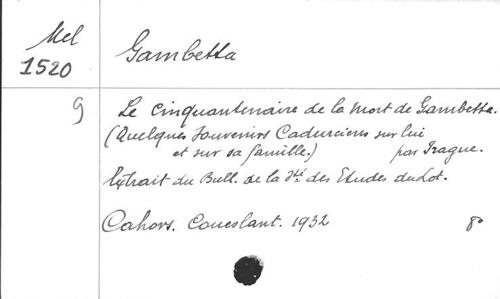 Mel
1520
Gambetta
9
Le Cinquantenaire de la Mort de Gambetta.
(Quelques Souvenirs Cadurciens sur lui
et sur sa famille.) par Irague.
Extrait du Bull. de la Sté des Etudes du Lot.
Cahors. Coueslant. 1932
8º